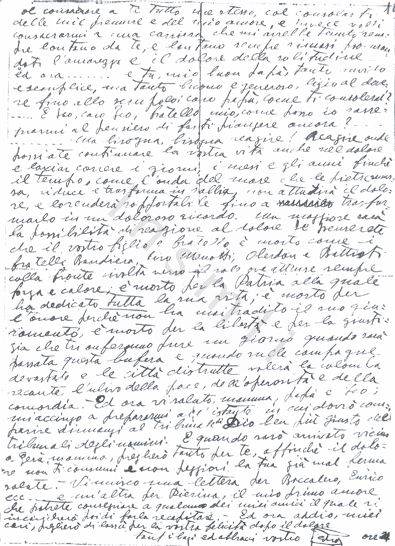 di consacrare a te tutto me stesso, col consolarti
delle mie premure e del mio amore, e invece volli
consacrarmi a una carriera che mi avrebbe tenuto sem-
pre lontano da te, e lontano sempre rimasi procuran-
doti l'amarezza e il dolore della solitudine
ed ora ...... e tu, mio buon papà, tanto
e semplice, ma tanto buono e generoso, ligio al dove-
re fino allo scrupolo: caro papà, come ti consolerai?
E tu, caro fratello mio, come posso rasse-
gnarmi al pensiero di farti piangere ancora?
Ma bisogna, bisogna reagire! Reagire onde
possiate continuare la vostra vita anche nel dolore
e lasciar correre i giorni i mesi e gli anni finché
il tempo, come l'onda del mare che le pietre
riduce e trasforma in sabbia, non attutirà il dolo-
re, e lo renderà sopportabile fino a trasfor-
marlo in un doloroso ricordo. Ma maggiore sarà
la possibilità di reazione al dolore se penserete
che il vostro figlio e fratello è morto come i
fratelli Bandiera, Ciro Menotti, Oberdan e Battisti
colla fronte rivolta verso il sole ove attinse sempre
forza e calore; è morto per la Patria alla quale
ha dedicato tutta la sua vita; è morto per
l'onore perché non ha mai tradito il suo giu-
ramento, è morto per la libertà e per la giusti-
zia che trionferanno pure un giorno quando sarà
passata questa bufera e quando sulle campagne
devastate e le città distrutte volerà la colomba
recante l'ulivo della pace, dell'operosità e della
concordia. - Ed ora vi saluto, mamma, papà e
mi accingo a prepararmi all'istante in cui dovrò com-
parire dinnanzi al tribunale di Dio ben più giusto dei
tribunali degli uomini. E quando sarò arrivato vicino
a Gesù, mamma, pregherò tanto per te, affinché il dolo-
re non ti consumi e non peggiori la tua già mal ferma
salute. - Vi unisco una lettera per Boccaleri, Enrico
ecc - e un'altra per Pierina, il mio primo amore
che potrete consegnare a qualcuno dei miei amici il quale
poi di farla recapitare. Ed ora addio, miei
cari, pregherò di lassù per la vostra felicità dopo il dolore
Tanti baci ed abbracci vostro